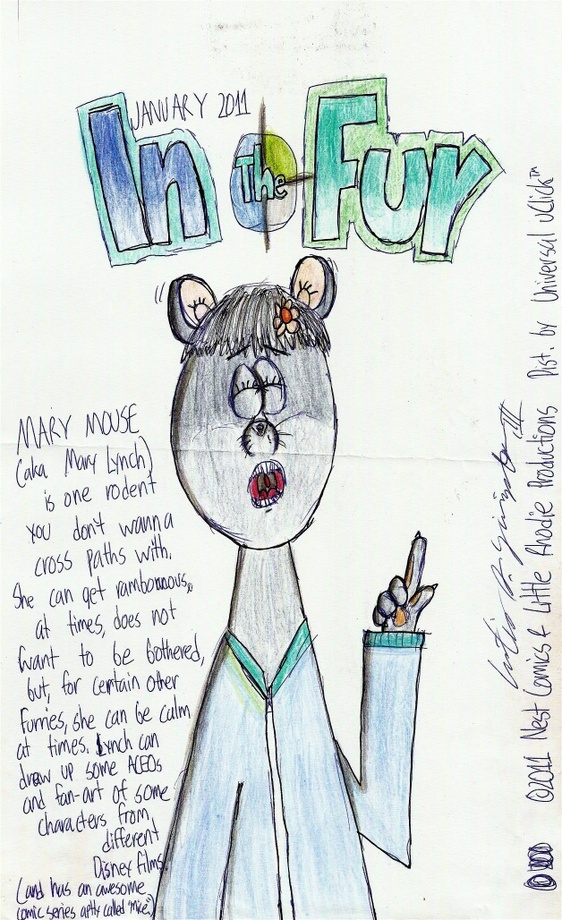 JANUARY 2011
In The Fur
MARY MOUSE
(aka Mary Lynch)
is one rodent
you don't wanna
cross paths with.
She can get rambonous,
at times, does not
want to be bothered,
but, for certain other
furries, she can be calm
at times. Lynch can
draw up some ACEOs
and fan-art of some
characters from,
different
Disney films.
(and has an awesome
comic series aptly called "Mice".)
©2011 Nest Comics & Little Rhodie Productions Dist. by Universal uClick™
III